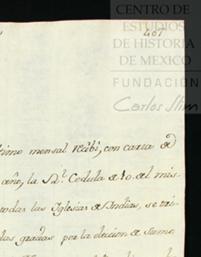 CENTRO DE
ESTUDIOS
DE HISTORIA
DE MEXICO
FUNDACIÓN
Carlos Slim
407
timo mensal recibi, con carta de
año, la Rl. Cedula de 10. del mis
todas las Iglesias de Indias, se
das gracias por la eleccion de Sumo